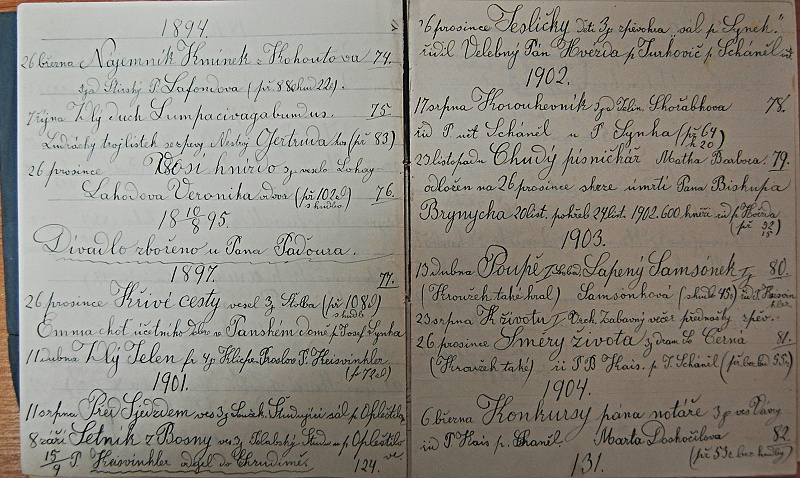 1894.
26 března Nájemník Kmínek z Kohoutova 74.
3jd Štívský P. Lafondova (př 88
7 října Zlý duch Lumpacivagabundus. 75
Ludrácký trojlístek se zpěvy Nestroy Gertruda (př 83)
26 prosince Vosí hnízdo 3j veselo Lohay
Lahodova Veronika vdova (př 102 76.
18 10/8 95.
Divadlo zbořeno u Pana Paďoura.
1897. 77.
26 prosince Křivé cesty vesel 3j Štolba (př 108
Emma choť účetního v Panském domě p Josef Synka
11 dubna Zlý Jelen fr 4j Klicpa Proslov P. Keisvinkler
(př 72
1901.
11 srpna Před Sjezdem ves 3j Studující sál p Opleštila
8 září Letník z Bosny ves 3j p Opleštilo
15/9 P. Keisvinkler odejel do Chrudimě 124.
26 prosince Jesličky 3j zpěvohra "sál p Synek."
řídil Velebný Pán Hvězda p Turkovič p Scháněl
1902.
17 srpna Korouhevník 3jd Škorábkova 78.
říd P. uč Scháněl u P Synka (př 64
h 20)
23 listopadu Chudý písničkář Matka Barbora. 79.
odložen na 26 prosince skrze úmrtí Pana Biskupa
Brynycha 20 list. pohřeb 24 list. 1902. 600 kněží říd p. Hvězda
(př 92
15)
1903.
13 dubna Poupě Lapený Samsónek 80.
(Kroužek také hrál) Samsonková
23 srpna K životu Vrch. Zábavný večer přednášky zpěv.
26 prosince Směry života 3j dram. Lo Černá 81.
(Kroužek také) ří P B Kais. p. J. Scháněl
1904.
6 března Konkursy pána notáře 3j ves
říd P Kais p. Scháněl. Marta Doskočilova 82.
(př 53
131.